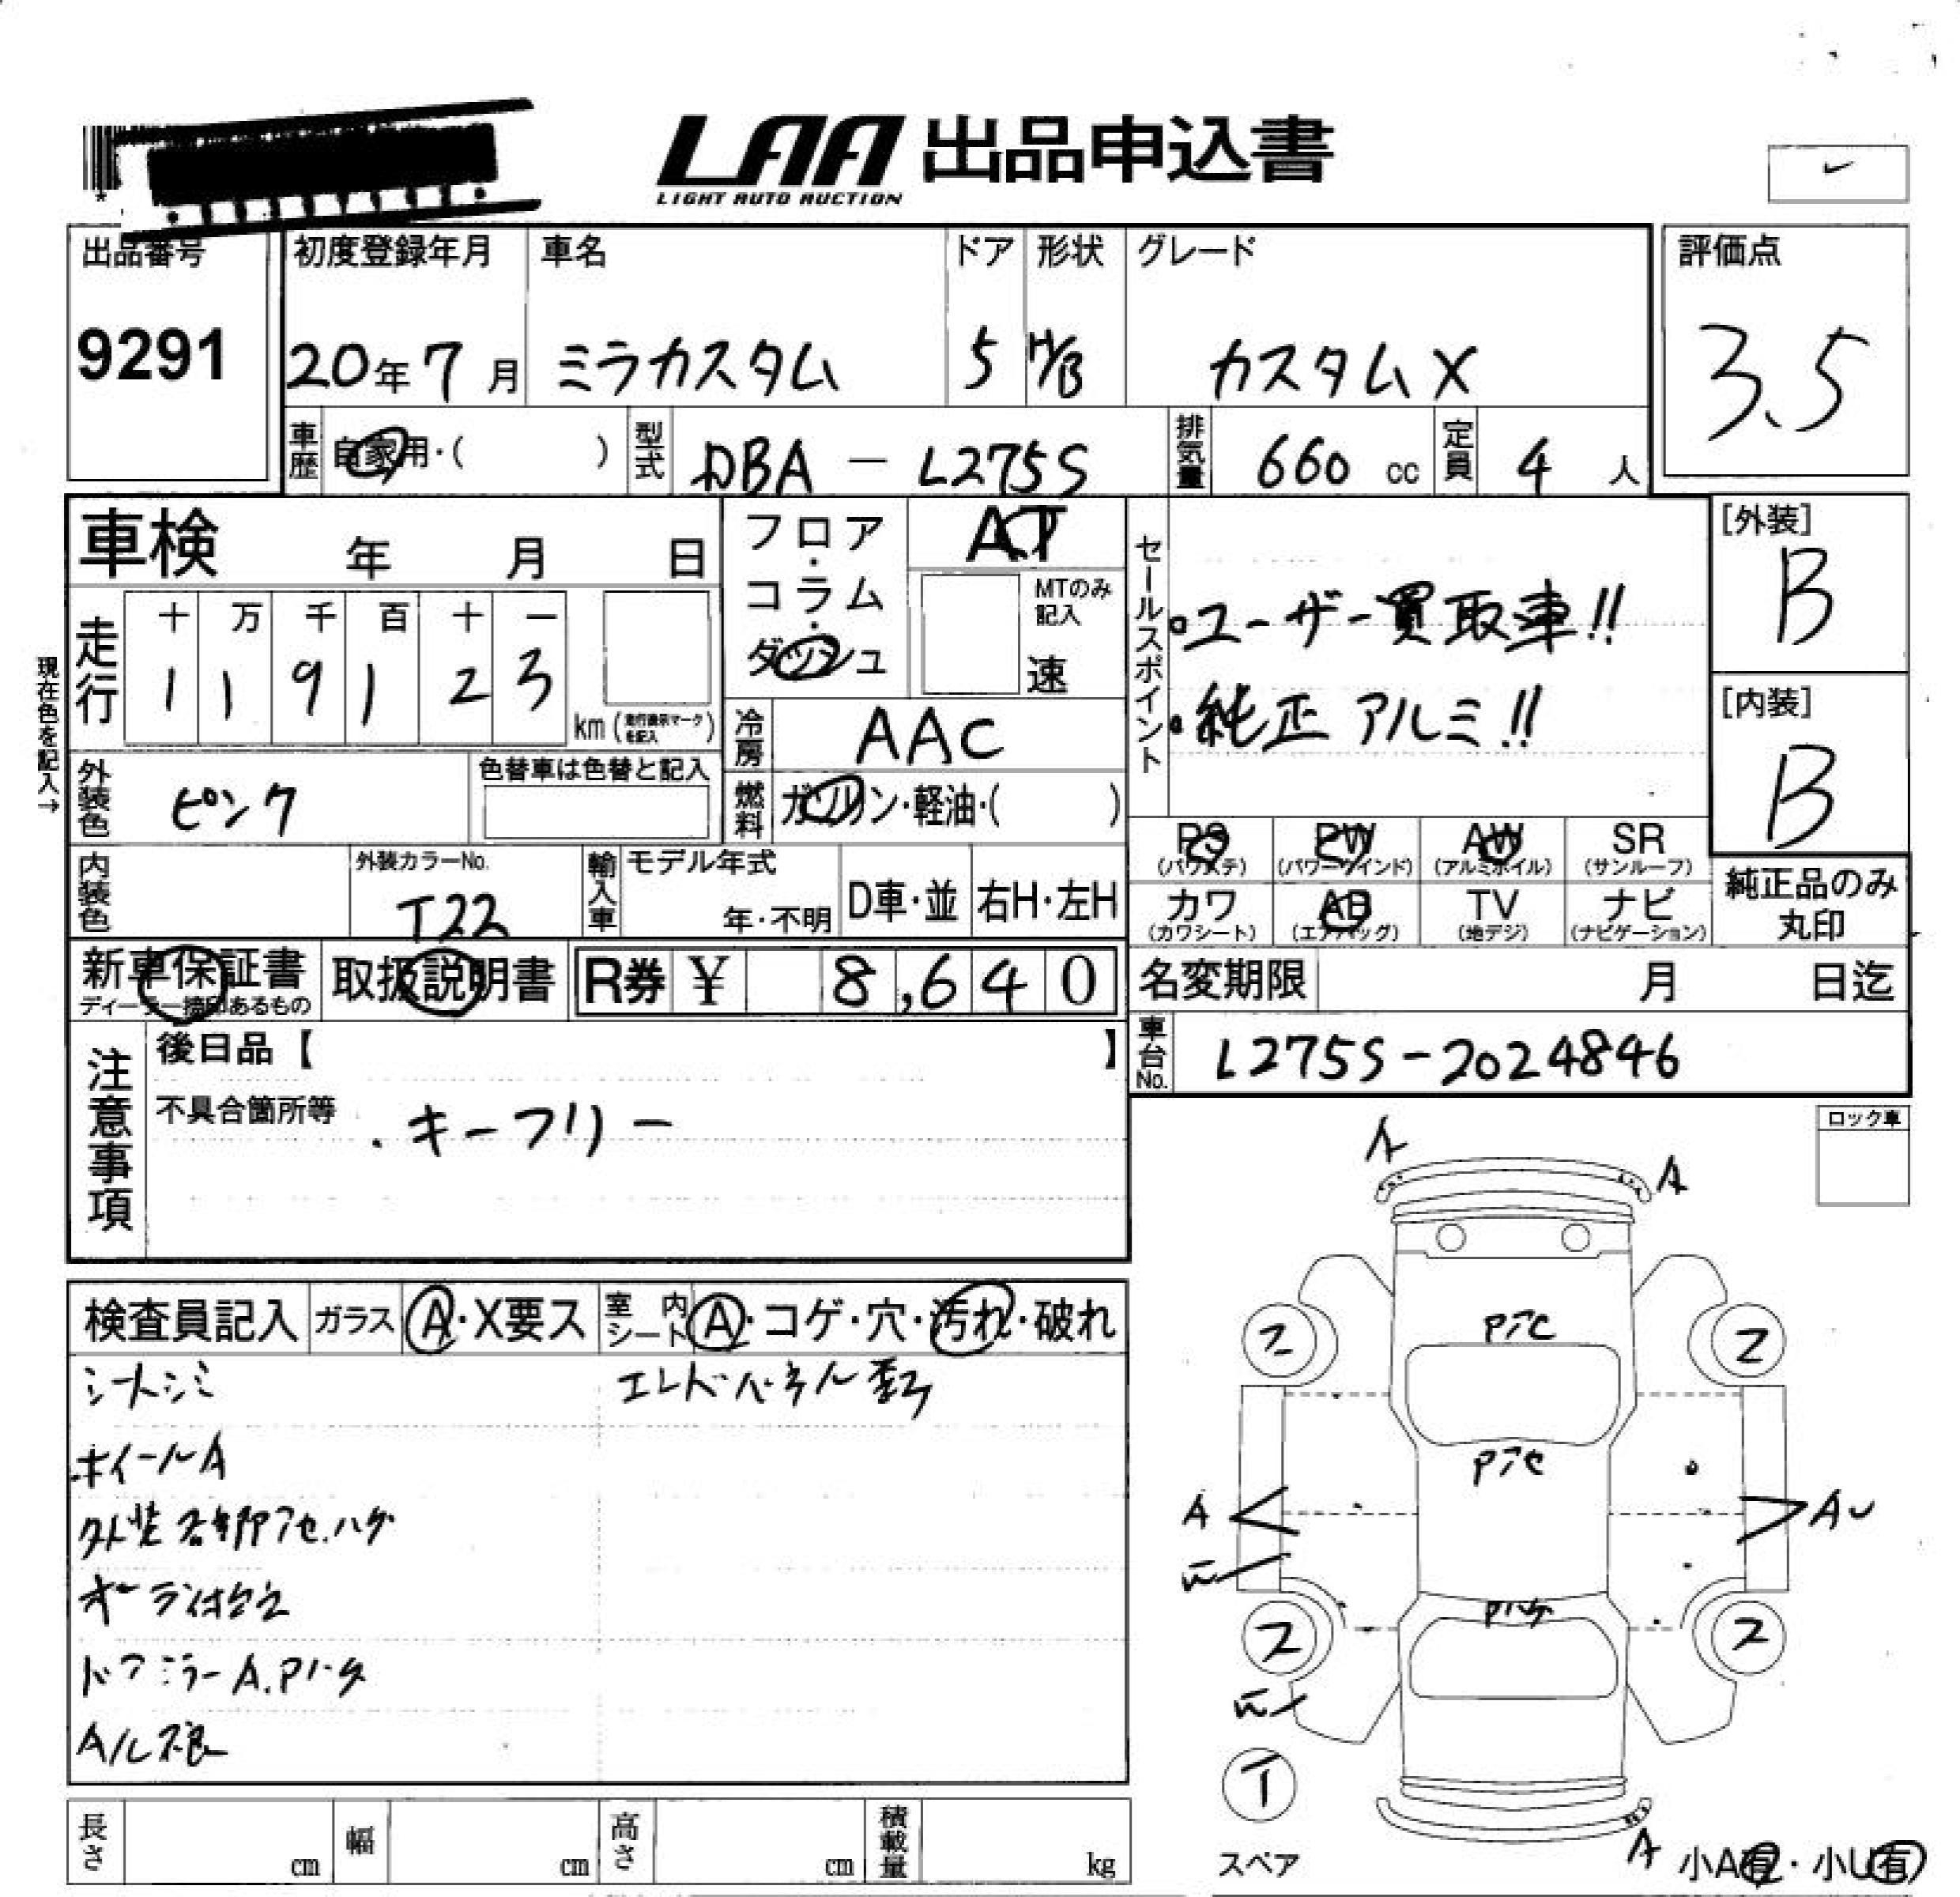 LAA 出品申込書
LIGHT AUTO AUCTION
出品番号 初度登録年月 車名 ドア 形状 グレード 評価点
9291 20年7月 ミラカスタム 5 H/B カスタムX 3.5
車歴 自家用・( ) 型式 DBA - L275S 排気量 660 cc 定員 4 人
車検 年 月 日 フロア・コラム・ダッシュ AT
MTのみ記入 速
セールスポイント
・ユーザー買取車!!
・純正アルミ!!
[外装]
B
[内装]
B
現在色を記入→
走行 十 万 千 百 十 一
1 1 9 1 2 3 km (走行表示マークを記入)
冷房 AAC
外装色 ピンク 色替車は色替と記入
燃料 ガソリン・軽油・( )
内装色 外装カラーNo. T22 輸入車 モデル年式 年・不明 D車・並 右H・左H
PS (パワステ) PW (パワーウインド) AW (アルミホイル) SR (サンルーフ)
カワ (カワシート) AB (エアバッグ) TV (地デジ) ナビ (ナビゲーション)
純正品のみ丸印
新車保証書 ディーラー捺印あるもの 取扱説明書 R券 ¥ 8,640
名変期限 月 日迄
車台No. L275S-2024846
注意事項 後日品【 】
不具合箇所等 ・キーフリー
ロック車
検査員記入 ガラス A・X要ス 室内シート A・コゲ・穴・汚れ・破れ
シートシミ
ホイールA
外装各部Pアセ.ハゲ
ドアミラーA.Pハゲ
A/L不良
A
A
Pアセ
2
2
Pアセ
A
AU
Pハゲ
2
2
T
スペア
A
小A有・小U有
長さ cm 幅 cm 高さ cm 積載量 kg